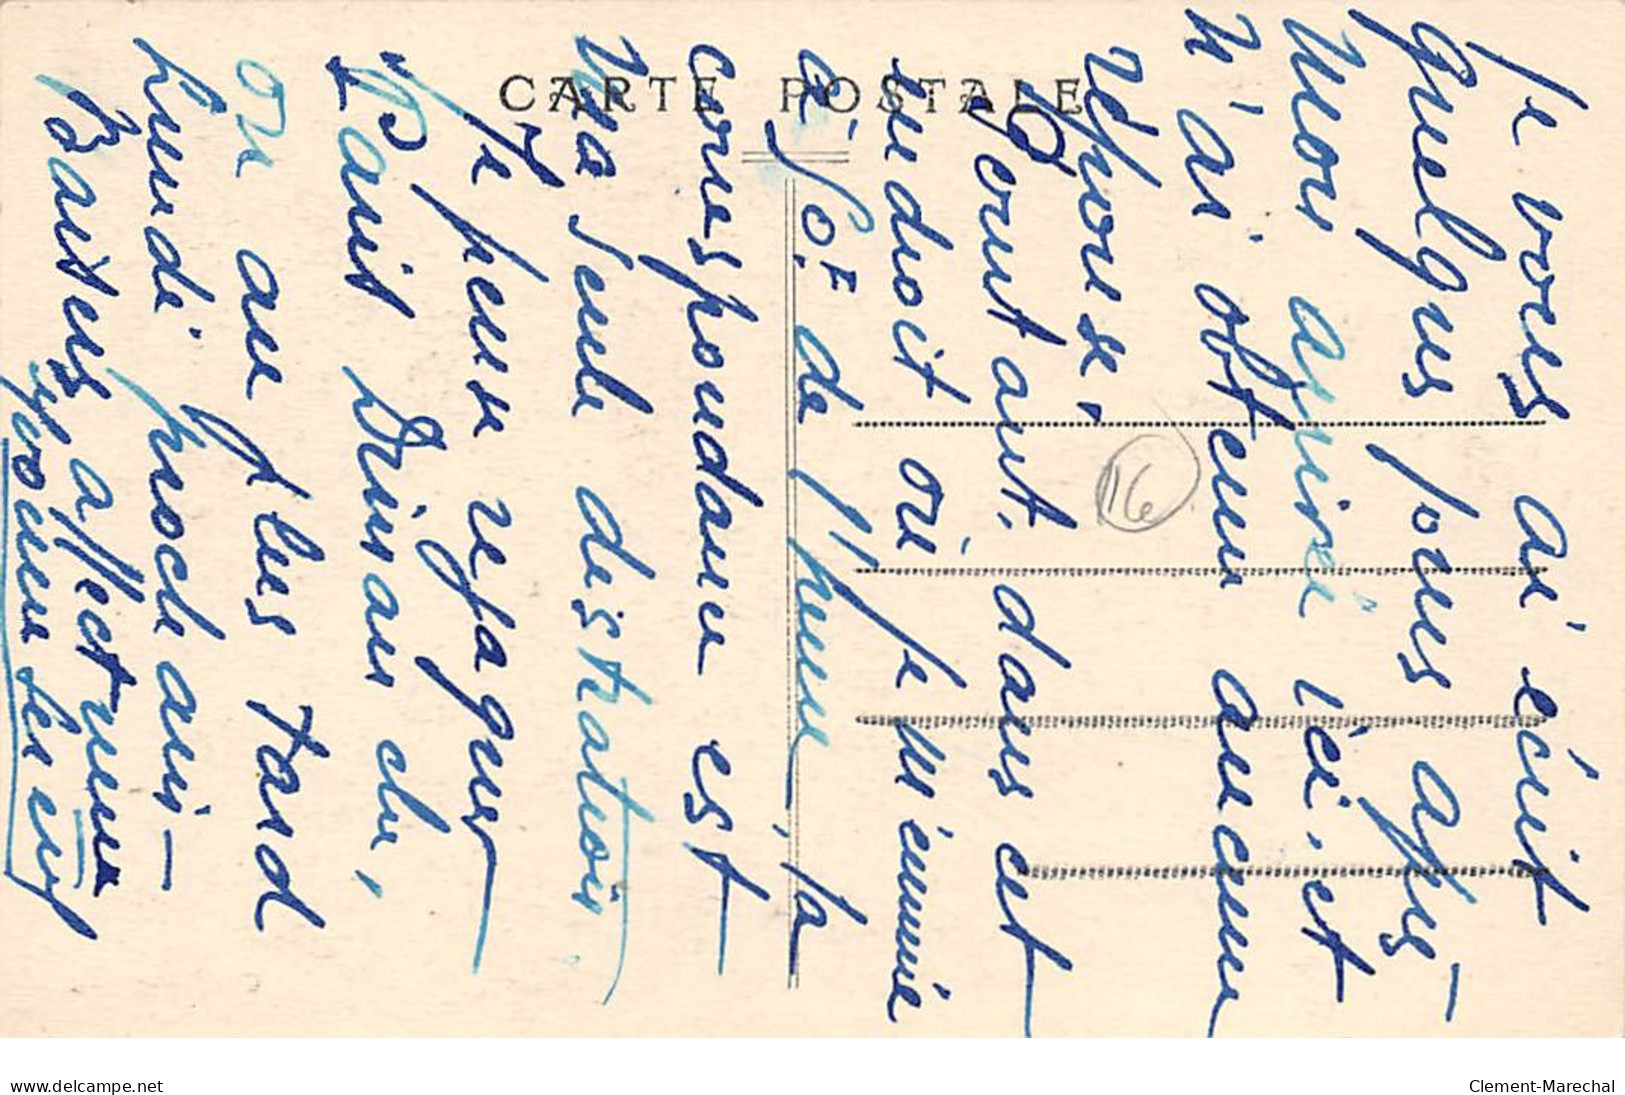 CARTE POSTALE
Je vous ai écrit
quelques jours après
mon arrivé ici. et
n'ai obtenu aucune
réponse,
Pourtant, dans cet
endroit où je m'ennuie
à 80% de l'heure, la
correspondance est
ma seule distraction
Je pense regagner
Paris Dimanche,
ou au plus tard
Lundi prochain -
Baisers affectueux
16
www.delcampe.net
Clement-Marechal